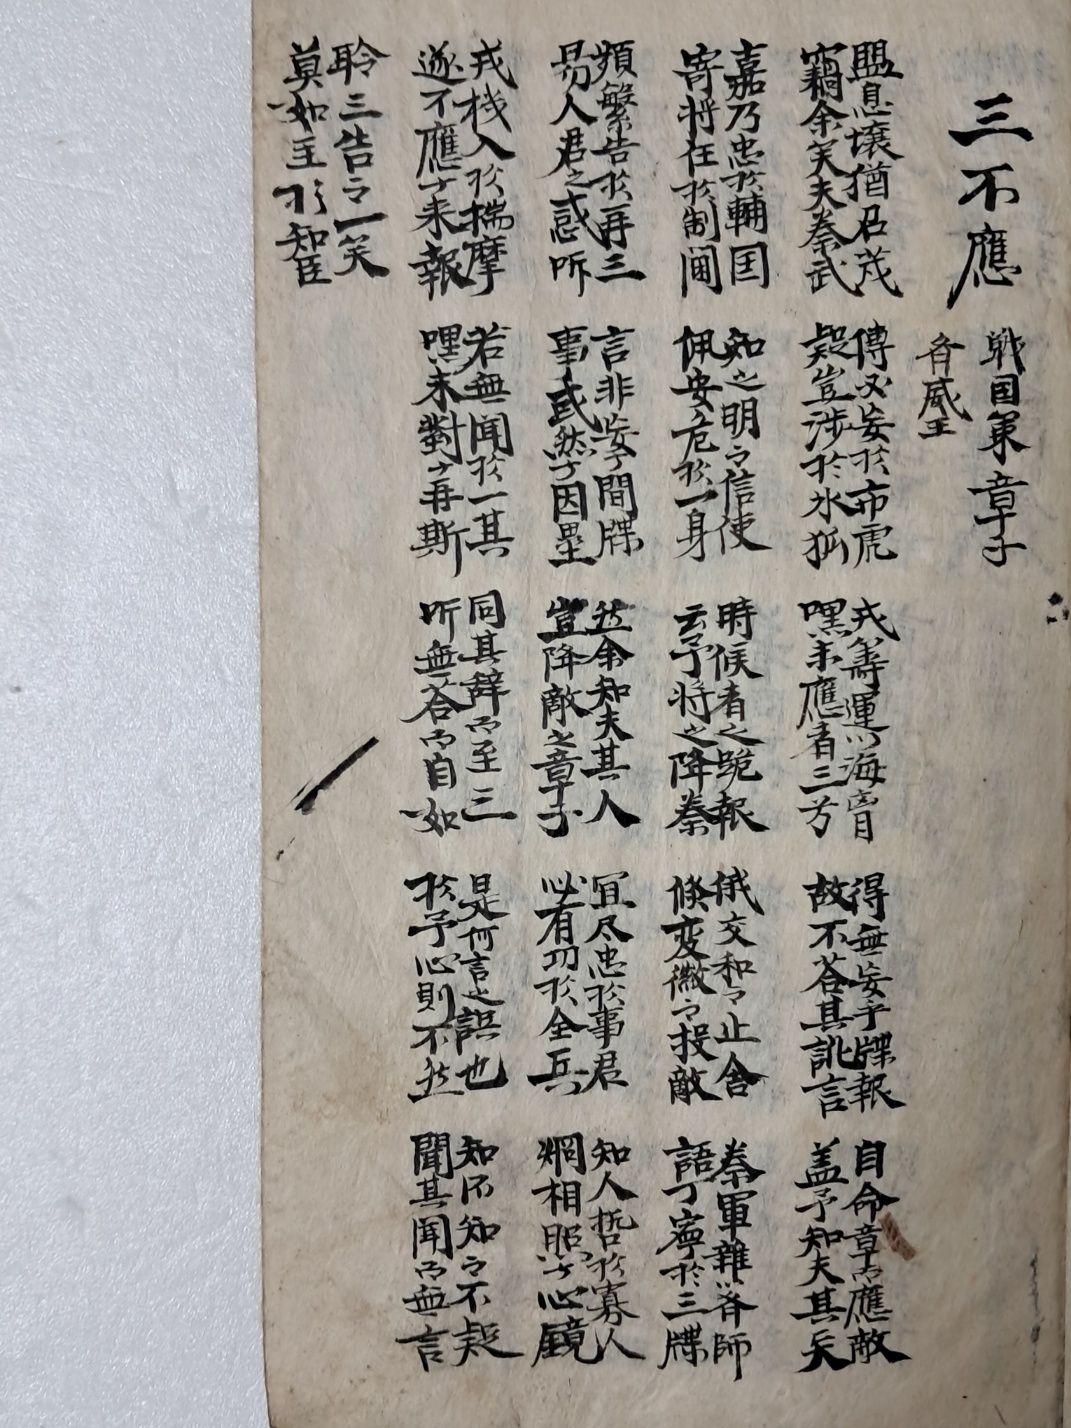 三不應
戰国策章子
齊威王
盟息壤猶召茂
竊余笑夫秦武
傳必妄於市虎
疑豈涉於氷狐
戎籌運以海
嘿未應者三方
得無妄乎牒報
故不答其訛言
自命章而應敵
盖予知夫其矣
嘉乃忠於輔国
寄將任於制閫
知之明而信使
佩安危於一身
時候者之跪報
云予将之降秦
俄交和而止舎
倏变徽而投敵
秦軍雜以齊師
語丁寧於三牒
頻繁告於再三
易人君之惑听
言非妄乎間牒
事或然乎因壘
然余知夫其人
豈降敵之章子
宜尽忠於事君
必有功於全兵
知人哲於寡人
炯相照於心鏡
戎栈入於揣摩
遂不應乎来報
若無聞於一其
嘿未對乎再斯
同其辞而至三
听無答而自如
是何言之誤也
於予心則不然
知不知而不疑
聞其聞而無言
聆三告而一笑
莫如王於知臣